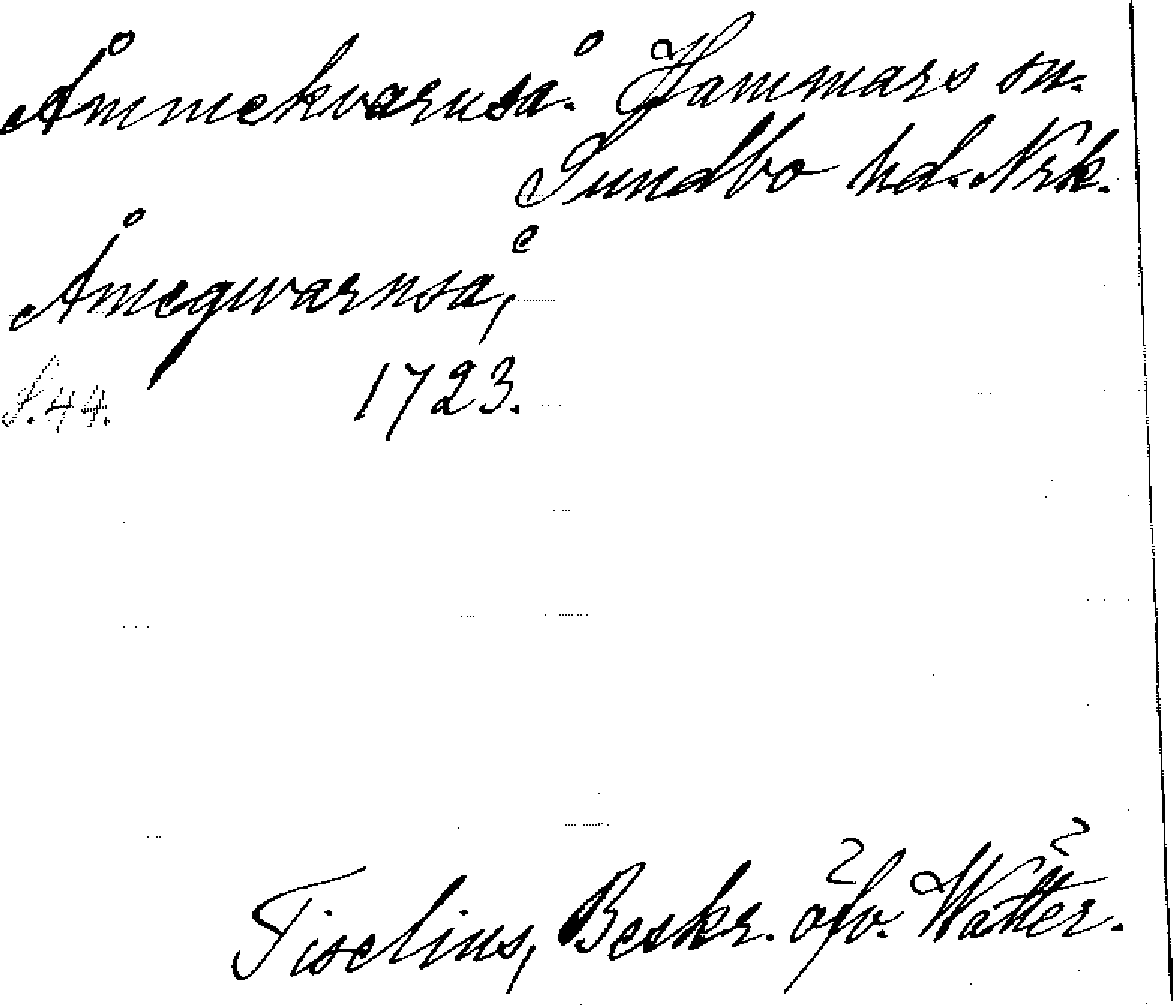 Åmmekvarnså. Hammars sn.
Sundbo hd. Nrk.
Åmeqwarnså,
S. 44. 1723.
Tiselius, Beskr. öfv. Wätter.